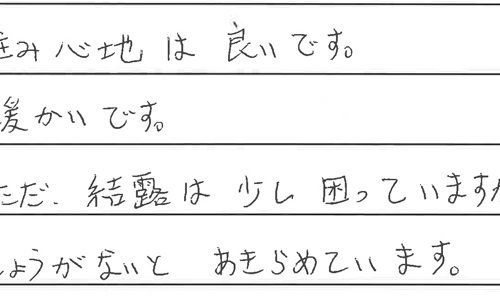 住み心地は良いです。
暖かいです。
ただ、結露は少し困っていますが
しょうがないとあきらめています。